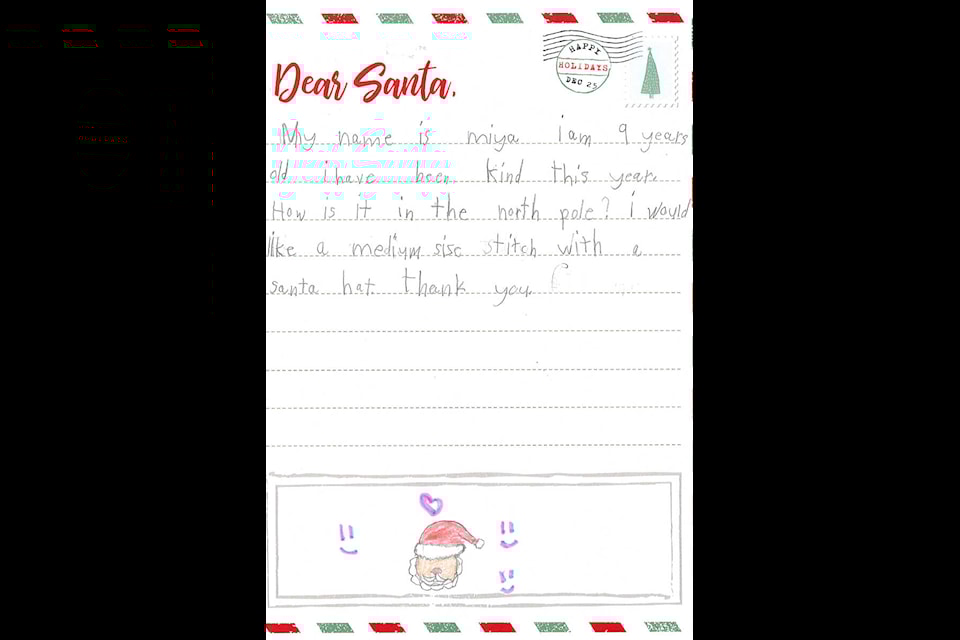 HAPPY
HOLIDAYS
DEC 25
Dear Santa,
My name is miya i am 9 years
old i have been kind this year.
How is it in the north pole? i would
like a medium sisc stitch with a
santa hat. thank you.